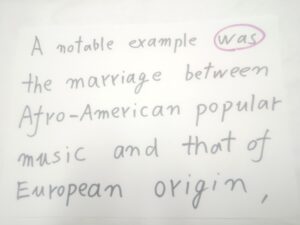 A notable example was
the marriage between
Afro-American popular
music and that of
European origin,